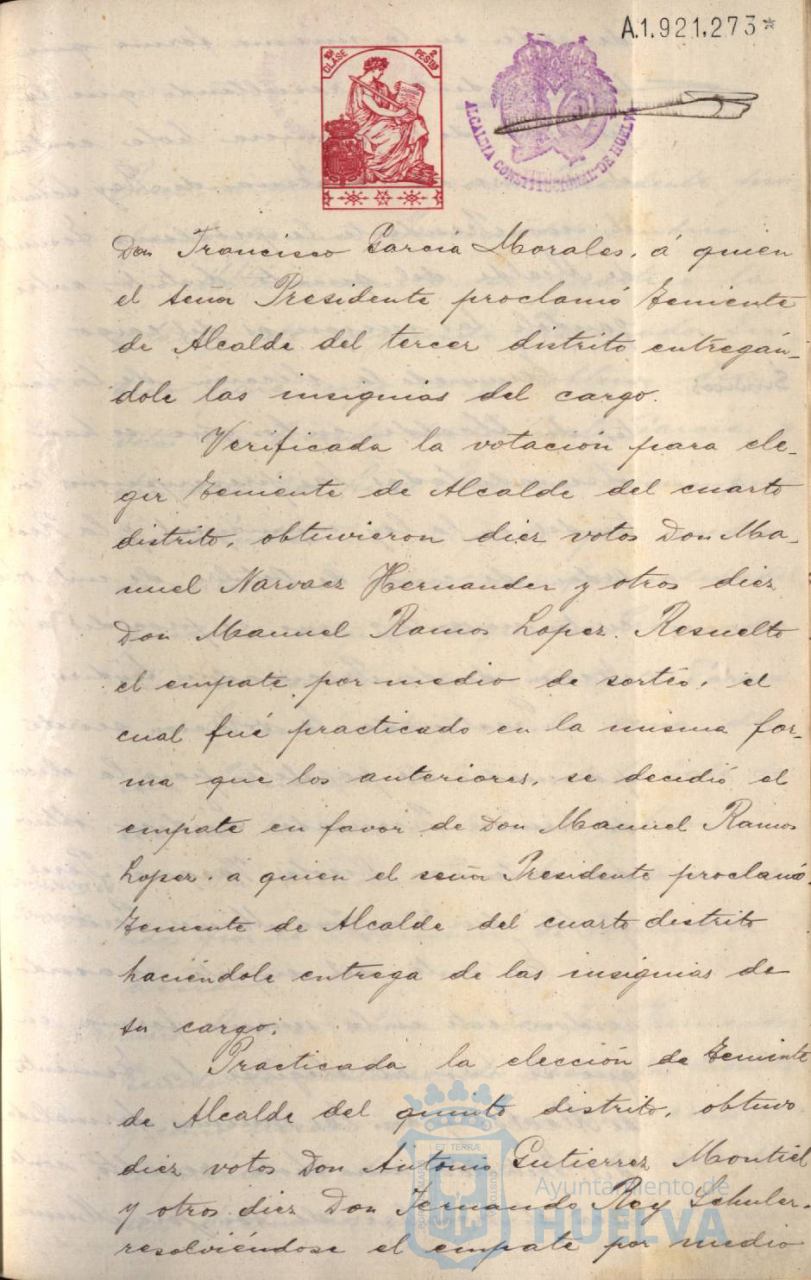 A.1.921,273*
10ª CLASE
2 PESTAS
ALCALDIA CONSTITUCIONAL DE HUELVA
Don Francisco Garcia Morales, á quien
el señor Presidente proclamó Teniente
de Alcalde del tercer distrito entregán-
dole las insignias del cargo.
Verificada la votación para ele-
gir Teniente de Alcalde del cuarto
distrito, obtuvieron diez votos Don Ma-
nuel Narvaez Hernandez y otros diez
Don Manuel Ramos Lopez. Resuelto
el empate por medio de sortéo, el
cual fué practicado en la misma for-
ma que los anteriores, se decidió el
empate en favor de Don Manuel Ramos
Lopez. á quien el señor Presidente proclamó
Teniente de Alcalde del cuarto distrito
haciéndole entrega de las insignias de
su cargo.
Practicada la elección de Teniente
de Alcalde del quinto distrito, obtuvo
diez votos Don Antonio Gutierrez Montiel
y otros diez Don Fernando Rey Schuler-
resolviéndose el empate por medio
Ayuntamiento de
HUELVA